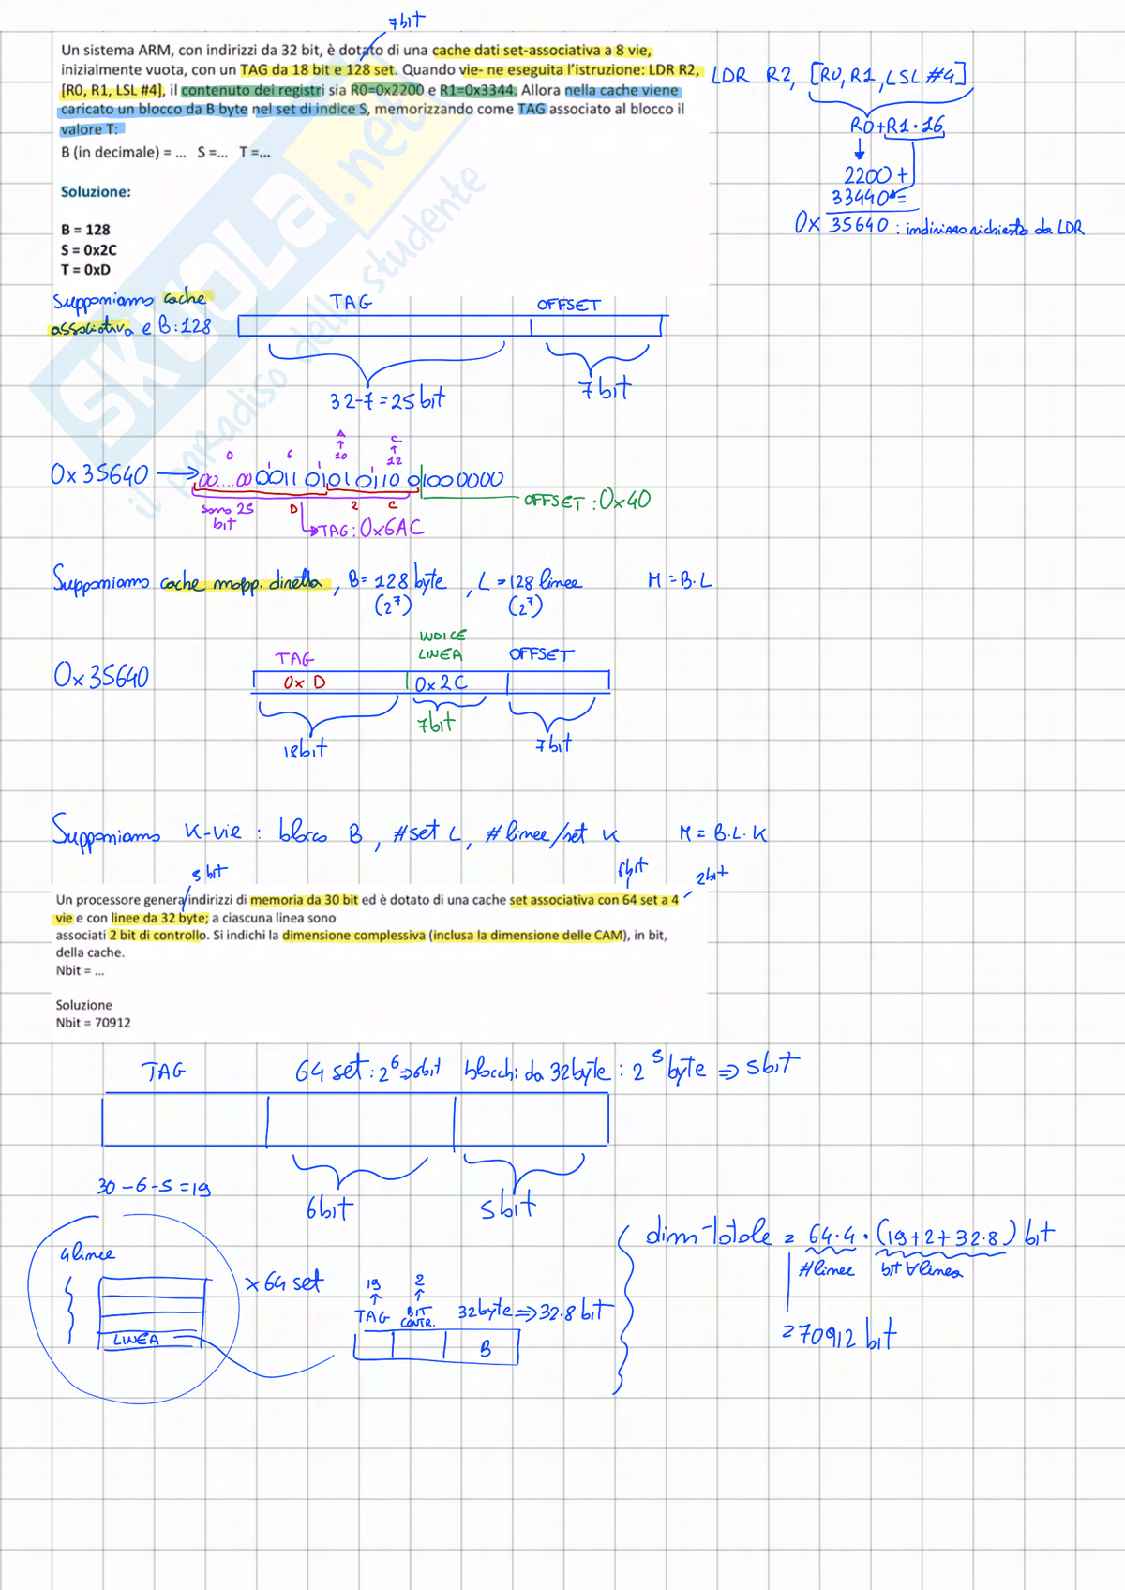 7bit
Un sistema ARM, con indirizzi da 32 bit, è dotato di una cache dati set-associativa a 8 vie,
inizialmente vuota, con un TAG da 18 bit e 128 set. Quando vie- ne eseguita l'istruzione: LDR R2,
[R0, R1, LSL #4], il contenuto dei registri sia R0=0x2200 e R1=0x3344. Allora nella cache viene
caricato un blocco da B byte nel set di indice S, memorizzando come TAG associato al blocco il
valore T:
B (in decimale) = ... S =... T =...
LDR R2, [R0, R1, LSL #4]
R0+R1·16
2200 +
33440 =
0x 35640 : indirizzo richiesto da LDR
Soluzione:
B = 128
S = 0x2C
T = 0xD
SKUOLA.net
il paradiso dello studente
Supponiamo cache
associativa e B:128
TAG OFFSET
32-7=25bit 7bit
0 6 A 10 C 12
0x35640 → 00....00 0011 0101 0110 0100 0000
sono 25
bit
D 2 C
TAG: 0x6AC
OFFSET: 0x40
Supponiamo cache mapp. diretta, B= 128 byte, L = 128 linee M = B·L
(2^7) (2^7)
0x35640
TAG INDICE LINEA OFFSET
0x D 0x2C
18bit 7bit 7bit
Supponiamo K-vie : blocco B, #set L, #linee/set K M = B·L·K
5bit 6bit 2bit
Un processore genera indirizzi di memoria da 30 bit ed è dotato di una cache set associativa con 64 set a 4
vie e con linee da 32 byte; a ciascuna linea sono
associati 2 bit di controllo. Si indichi la dimensione complessiva (inclusa la dimensione delle CAM), in bit,
della cache.
Nbit = ...
Soluzione
Nbit = 70912
TAG 64 set : 2^6 ⇒ 6bit blocchi da 32byte : 2^5 byte ⇒ 5bit
30-6-5=19
6bit 5bit
4 linee
LINEA
x 64 set
19 2
TAG BIT CONTR. 32byte ⇒ 32·8 bit
B
dim totale = 64·4·(19+2+32·8) bit
#linee bit ∀ linea
= 70912 bit